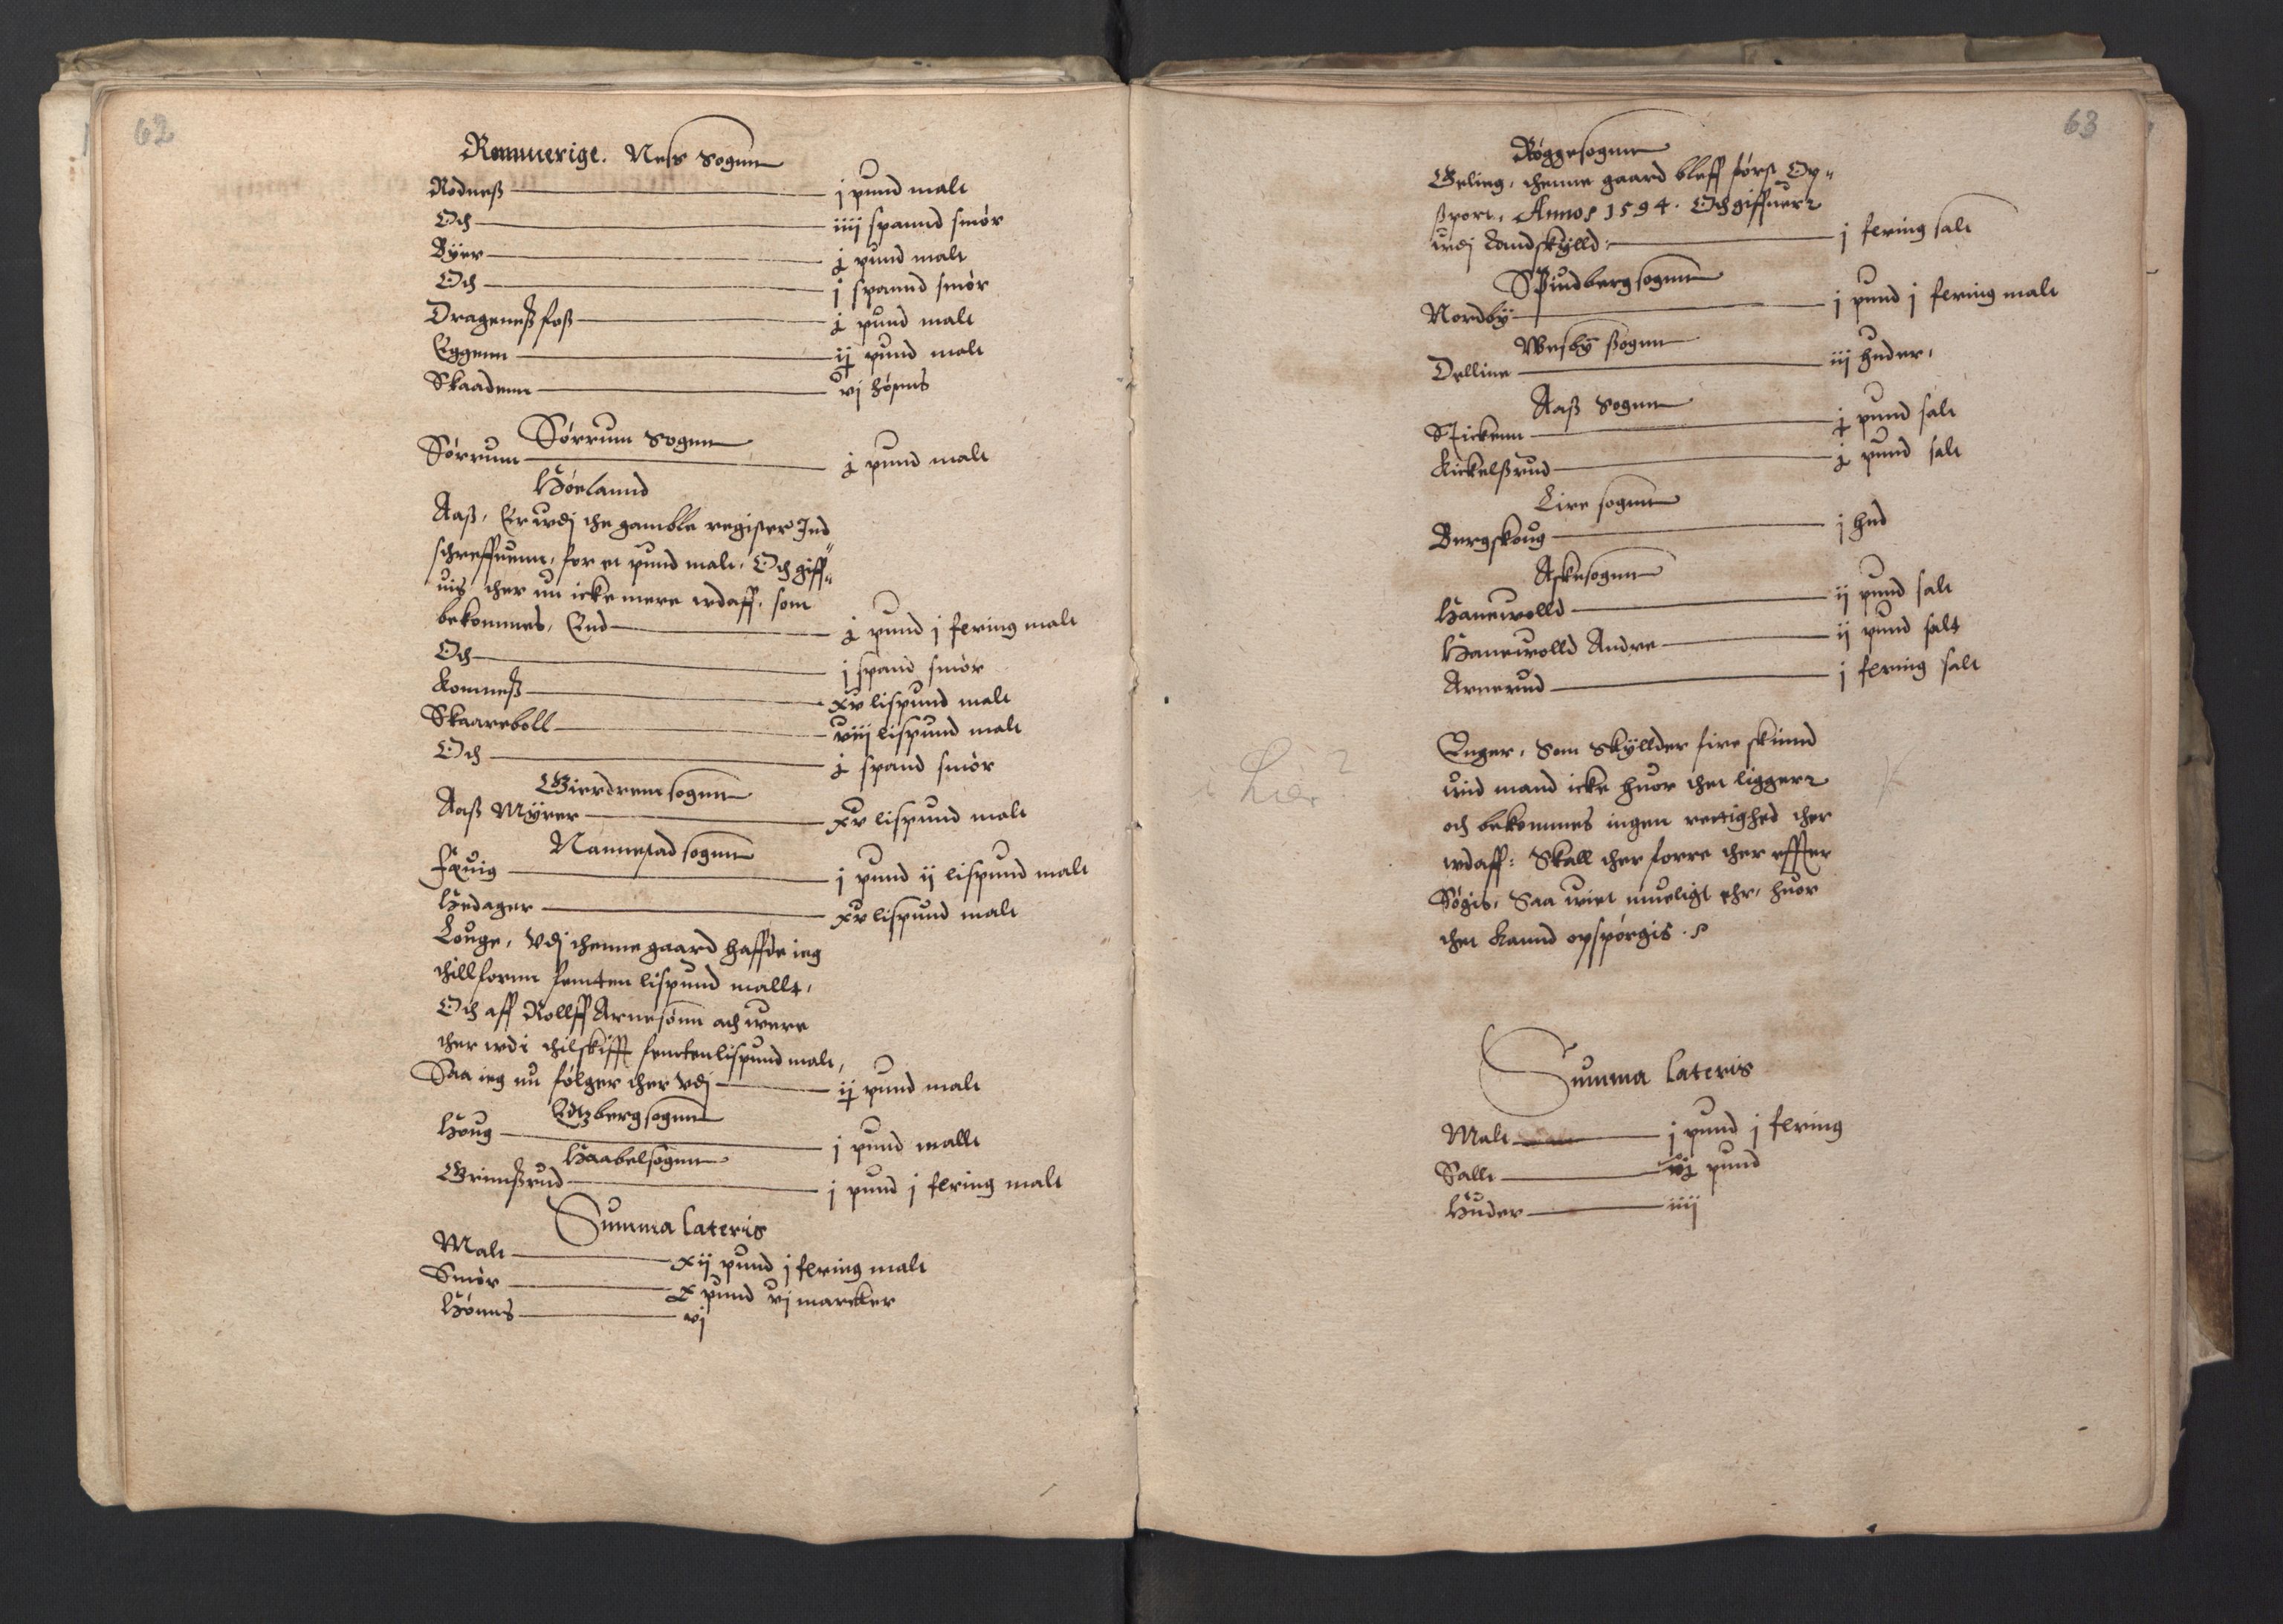 62
Rommerige. Ness Sognn
Rodness j pund malt
Och iiij spannd smör
Byer j pund malt
Och j spannd smör
Drageness foss j pund malt
Eggenn ij pund malt
Skaadenn vj hösnns
Sörrum Sognn
Sörrum j pund malt
Höelannd
Aass, Er wdj the gamble register Ind
schreffuenn, for et pund malt. Och giff
uis ther nu icke mere wdaff, som
bekommes, End j pund j fering malt
Och j spand smör
Komness xv lispund malt
Skaareboll viij lispund malt
Och j spand smör
Gierdrem sognn
Aass Myrer xv lispund malt
Nannestad sognn
j pund ij lispund malt
Hedager xv lispund malt
Louge, Vdj thenne gaard haffde ieg
thillforn femten lispund mallt,
Och aff Rollff Arnesönn ach were
ther wdi thilskifft femten lispund malt,
Saa ieg nu fölger ther Vdj ij pund malt
Edtzberg sognn
Houg j pund mallt
Haabelsognn
Grimssrud j pund j fering malt
Summa lateris
Malt xij pund j fering malt
Smör x pund vj marcker
Hönns vj
63
Röggesognn
Geling, thenne gaard bleff först Op
sport, Annos 1594. Och giffuer
wdj Landskylld j fering salt
Spindberg sognn
Nordby j pund j fering malt
Wesby sognn
Delline iij huder,
Aass Sognn
Stickenn j pund salt
Kickelssrud j pund salt
Lire sognn
Bergskoug j hud
Askesognn
Hanewolld ij pund salt
Hanewolld Andre ij pund salt
Arnerud j fering salt
Enger, Som Skyllder fire skinnd
wid mand icke huor thet ligger
och bekommes ingen rettighed ther
wdaff: Skall ther forre ther effter
Sögis, Saa wiet mueligt ehr, huor
thet kannd opspörgis.
Lier?
Summa lateris
Malt j pund j fering
Sallt vj pund
Huder iiij